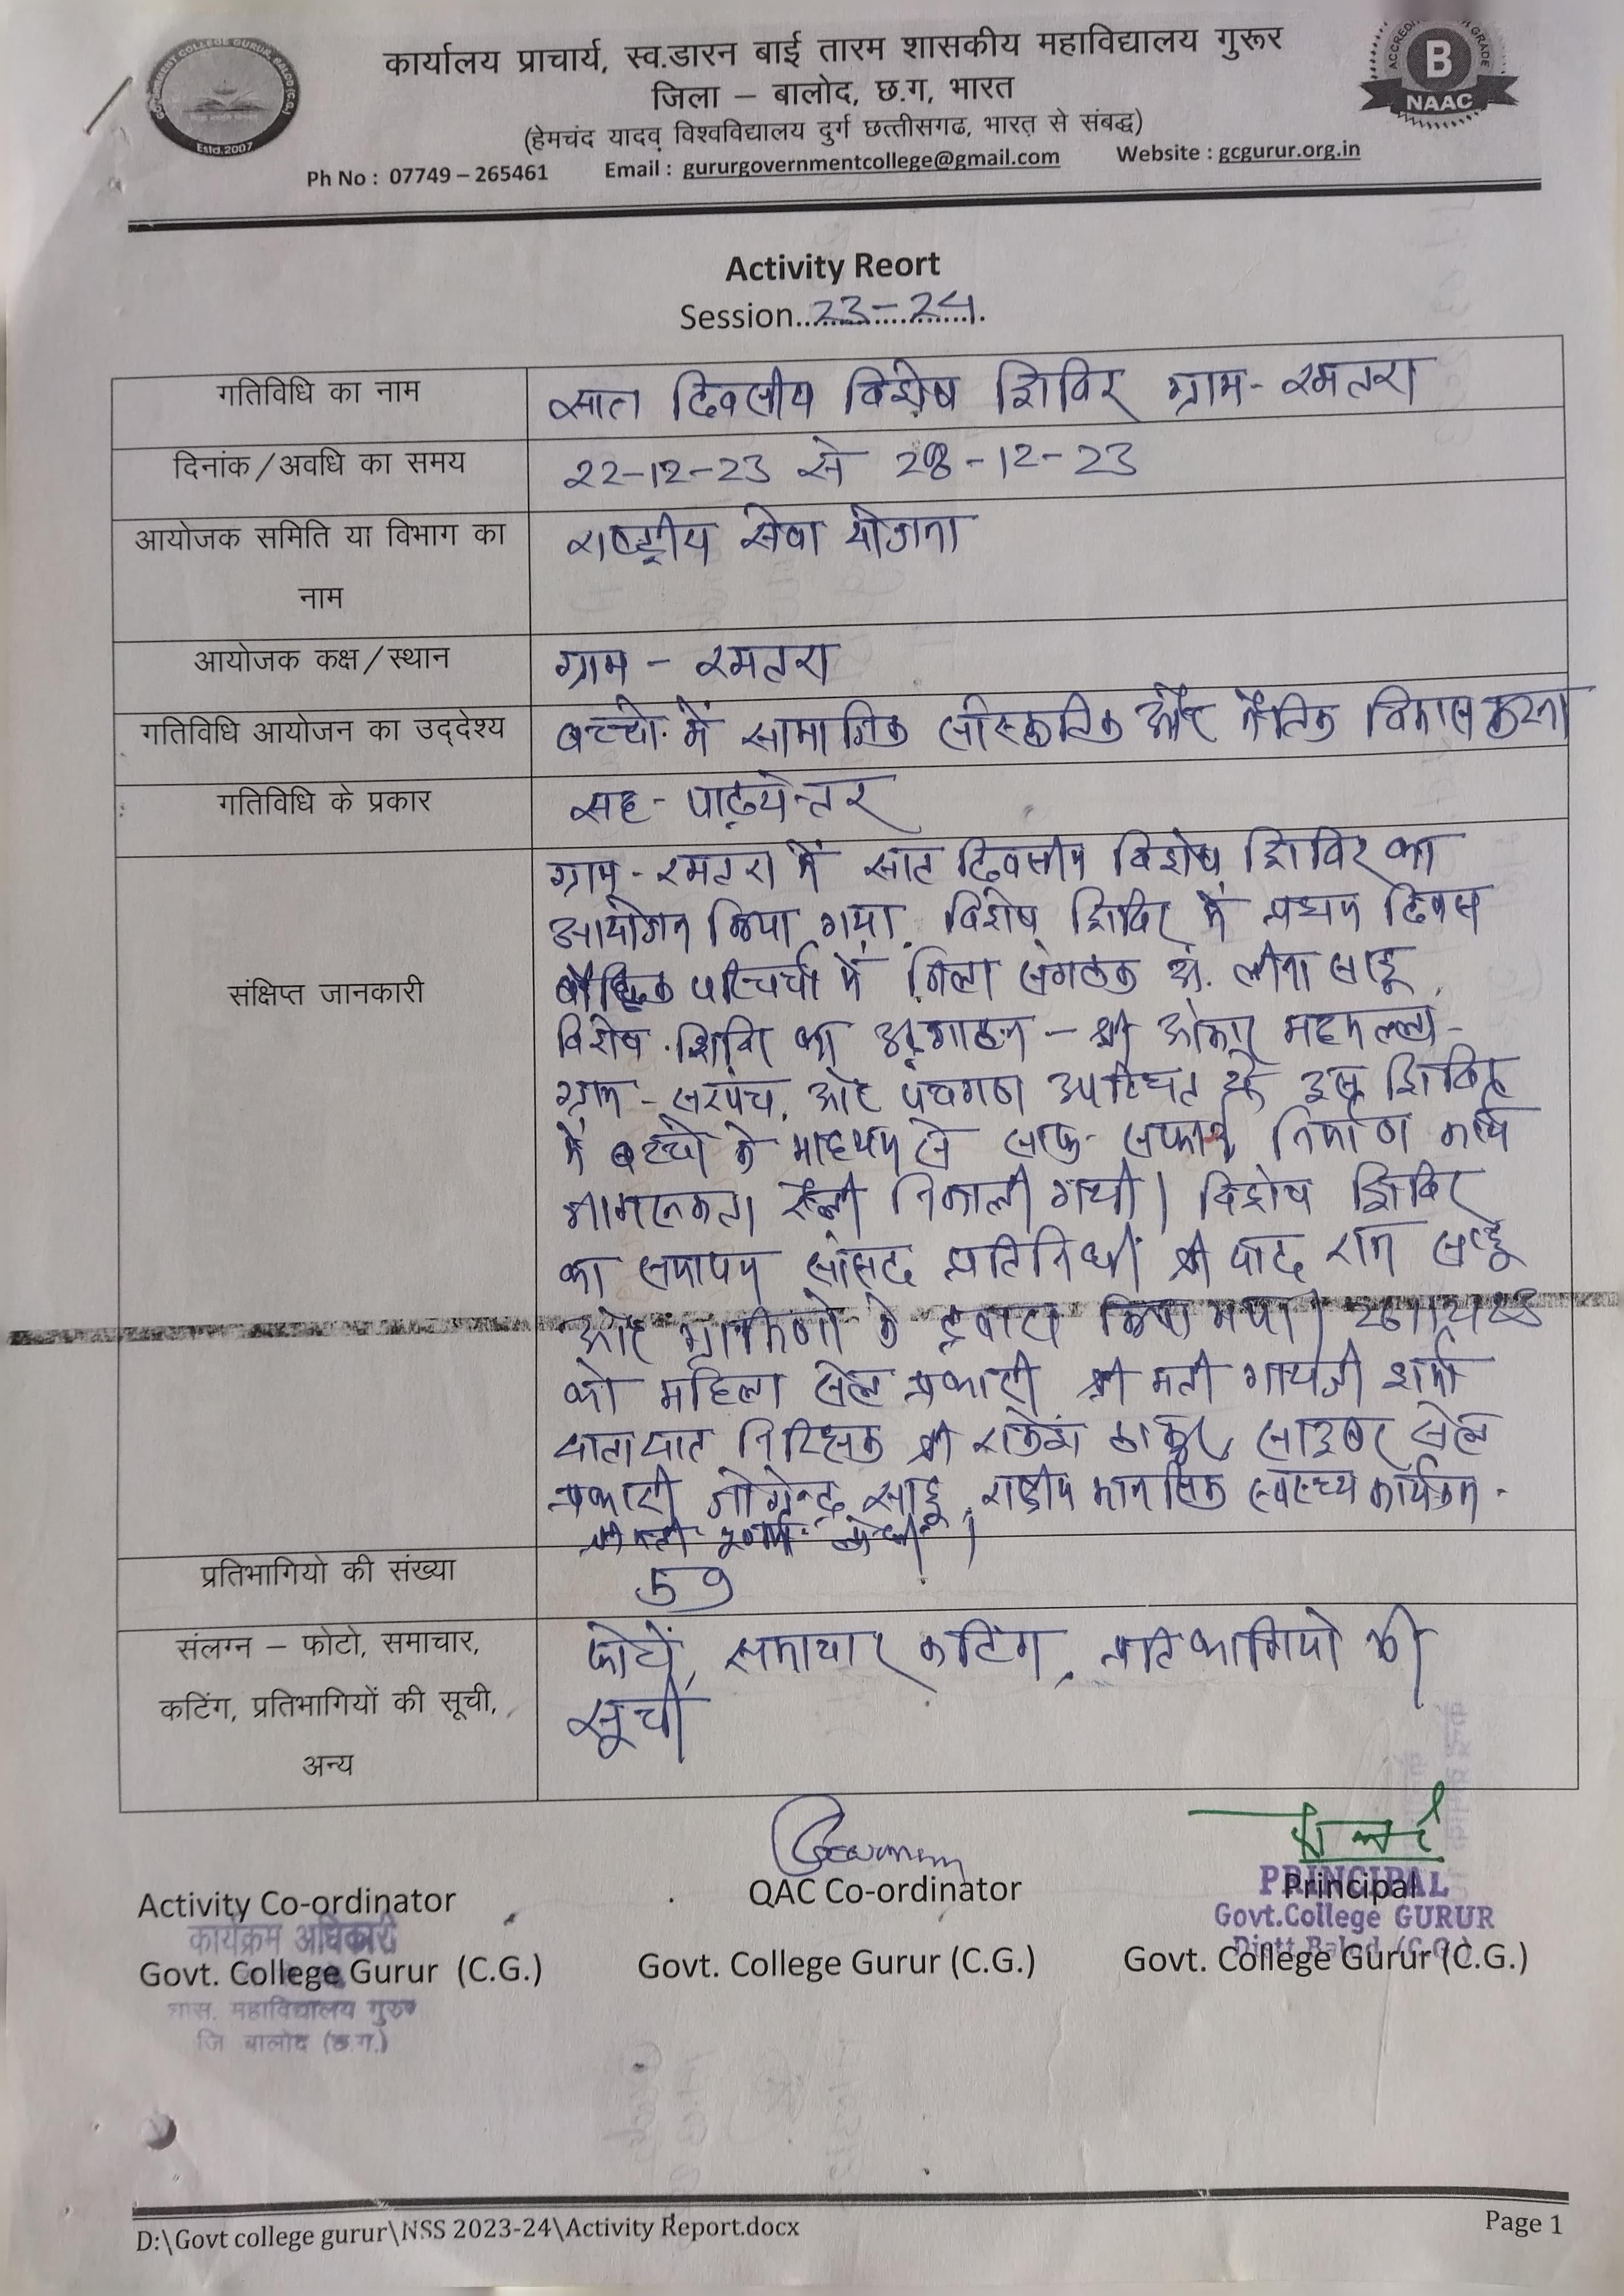 GOVERNMENT COLLEGE GURUR, BALOD (C.G.)
Estd.2007
कार्यालय प्राचार्य, स्व.डारन बाई तारम शासकीय महाविद्यालय गुरूर
जिला – बालोद, छ.ग, भारत
(हेमचंद यादव विश्वविद्यालय दुर्ग छत्तीसगढ, भारत से संबद्ध)
Ph No : 07749 – 265461 Email : gururgovernmentcollege@gmail.com Website : gcgurur.org.in
B
GRADE
NAAC
Activity Reort
Session..23-24.
गतिविधि का नाम
सात दिवसीय विशेष शिविर ग्राम - रमतरा
दिनांक/अवधि का समय
22-12-23 से 28-12-23
आयोजक समिति या विभाग का
नाम
राष्ट्रीय सेवा योजना
आयोजक कक्ष/स्थान
ग्राम - रमतरा
गतिविधि आयोजन का उद्देश्य
बच्चो में सामाजिक सांस्कृतिक और नैतिक विकास करना
गतिविधि के प्रकार
सह - पाठ्येन्तर
संक्षिप्त जानकारी
ग्राम - रमतरा में सात दिवसीय विशेष शिविर का
आयोजन किया गया. विशेष शिविर में प्रथम दिवस
बौद्धिक परिचर्चा में जिला संगठक लीना साहू,
विशेष शिविर का श्री ओंकार महमल्ला -
ग्राम - सरपंच, और पंचगण उपस्थित थे इस शिविर
में बच्चो के माध्यम से साफ - सफाई निर्माण कार्य
जागरूकता रैली निकाली गयी। विशेष शिविर
का समापन सांसद प्रतिनिधी श्री राम साहू
और ग्रामिणो के द्वारा किया गया।
को महिला सेल प्रभारी श्री मती गायत्री शर्मा
यातायात निरिक्षक श्री राकेश ठाकुर, साइबर सेल
प्रभारी जोगेन्द्र साहू, राष्ट्रीय मानसिक स्वास्थ्य कार्यक्रम -
प्रतिभागियो की संख्या
59
संलग्न – फोटो, समाचार,
कटिंग, प्रतिभागियों की सूची,
अन्य
फोटो, समाचार कटिंग, प्रतिभागियो की
सूची
Activity Co-ordinator
QAC Co-ordinator
PRINCIPAL
Principal
कार्यक्रम अधिकारी
Govt.College GURUR
Distt.Balod (C.G.)
Govt. College Gurur (C.G.)
Govt. College Gurur (C.G.)
Govt. College Gurur (C.G.)
शास. महाविद्यालय गुरुर
जि बालोद (छ.ग.)
D:\Govt college gurur\NSS 2023-24\Activity Report.docx
Page 1